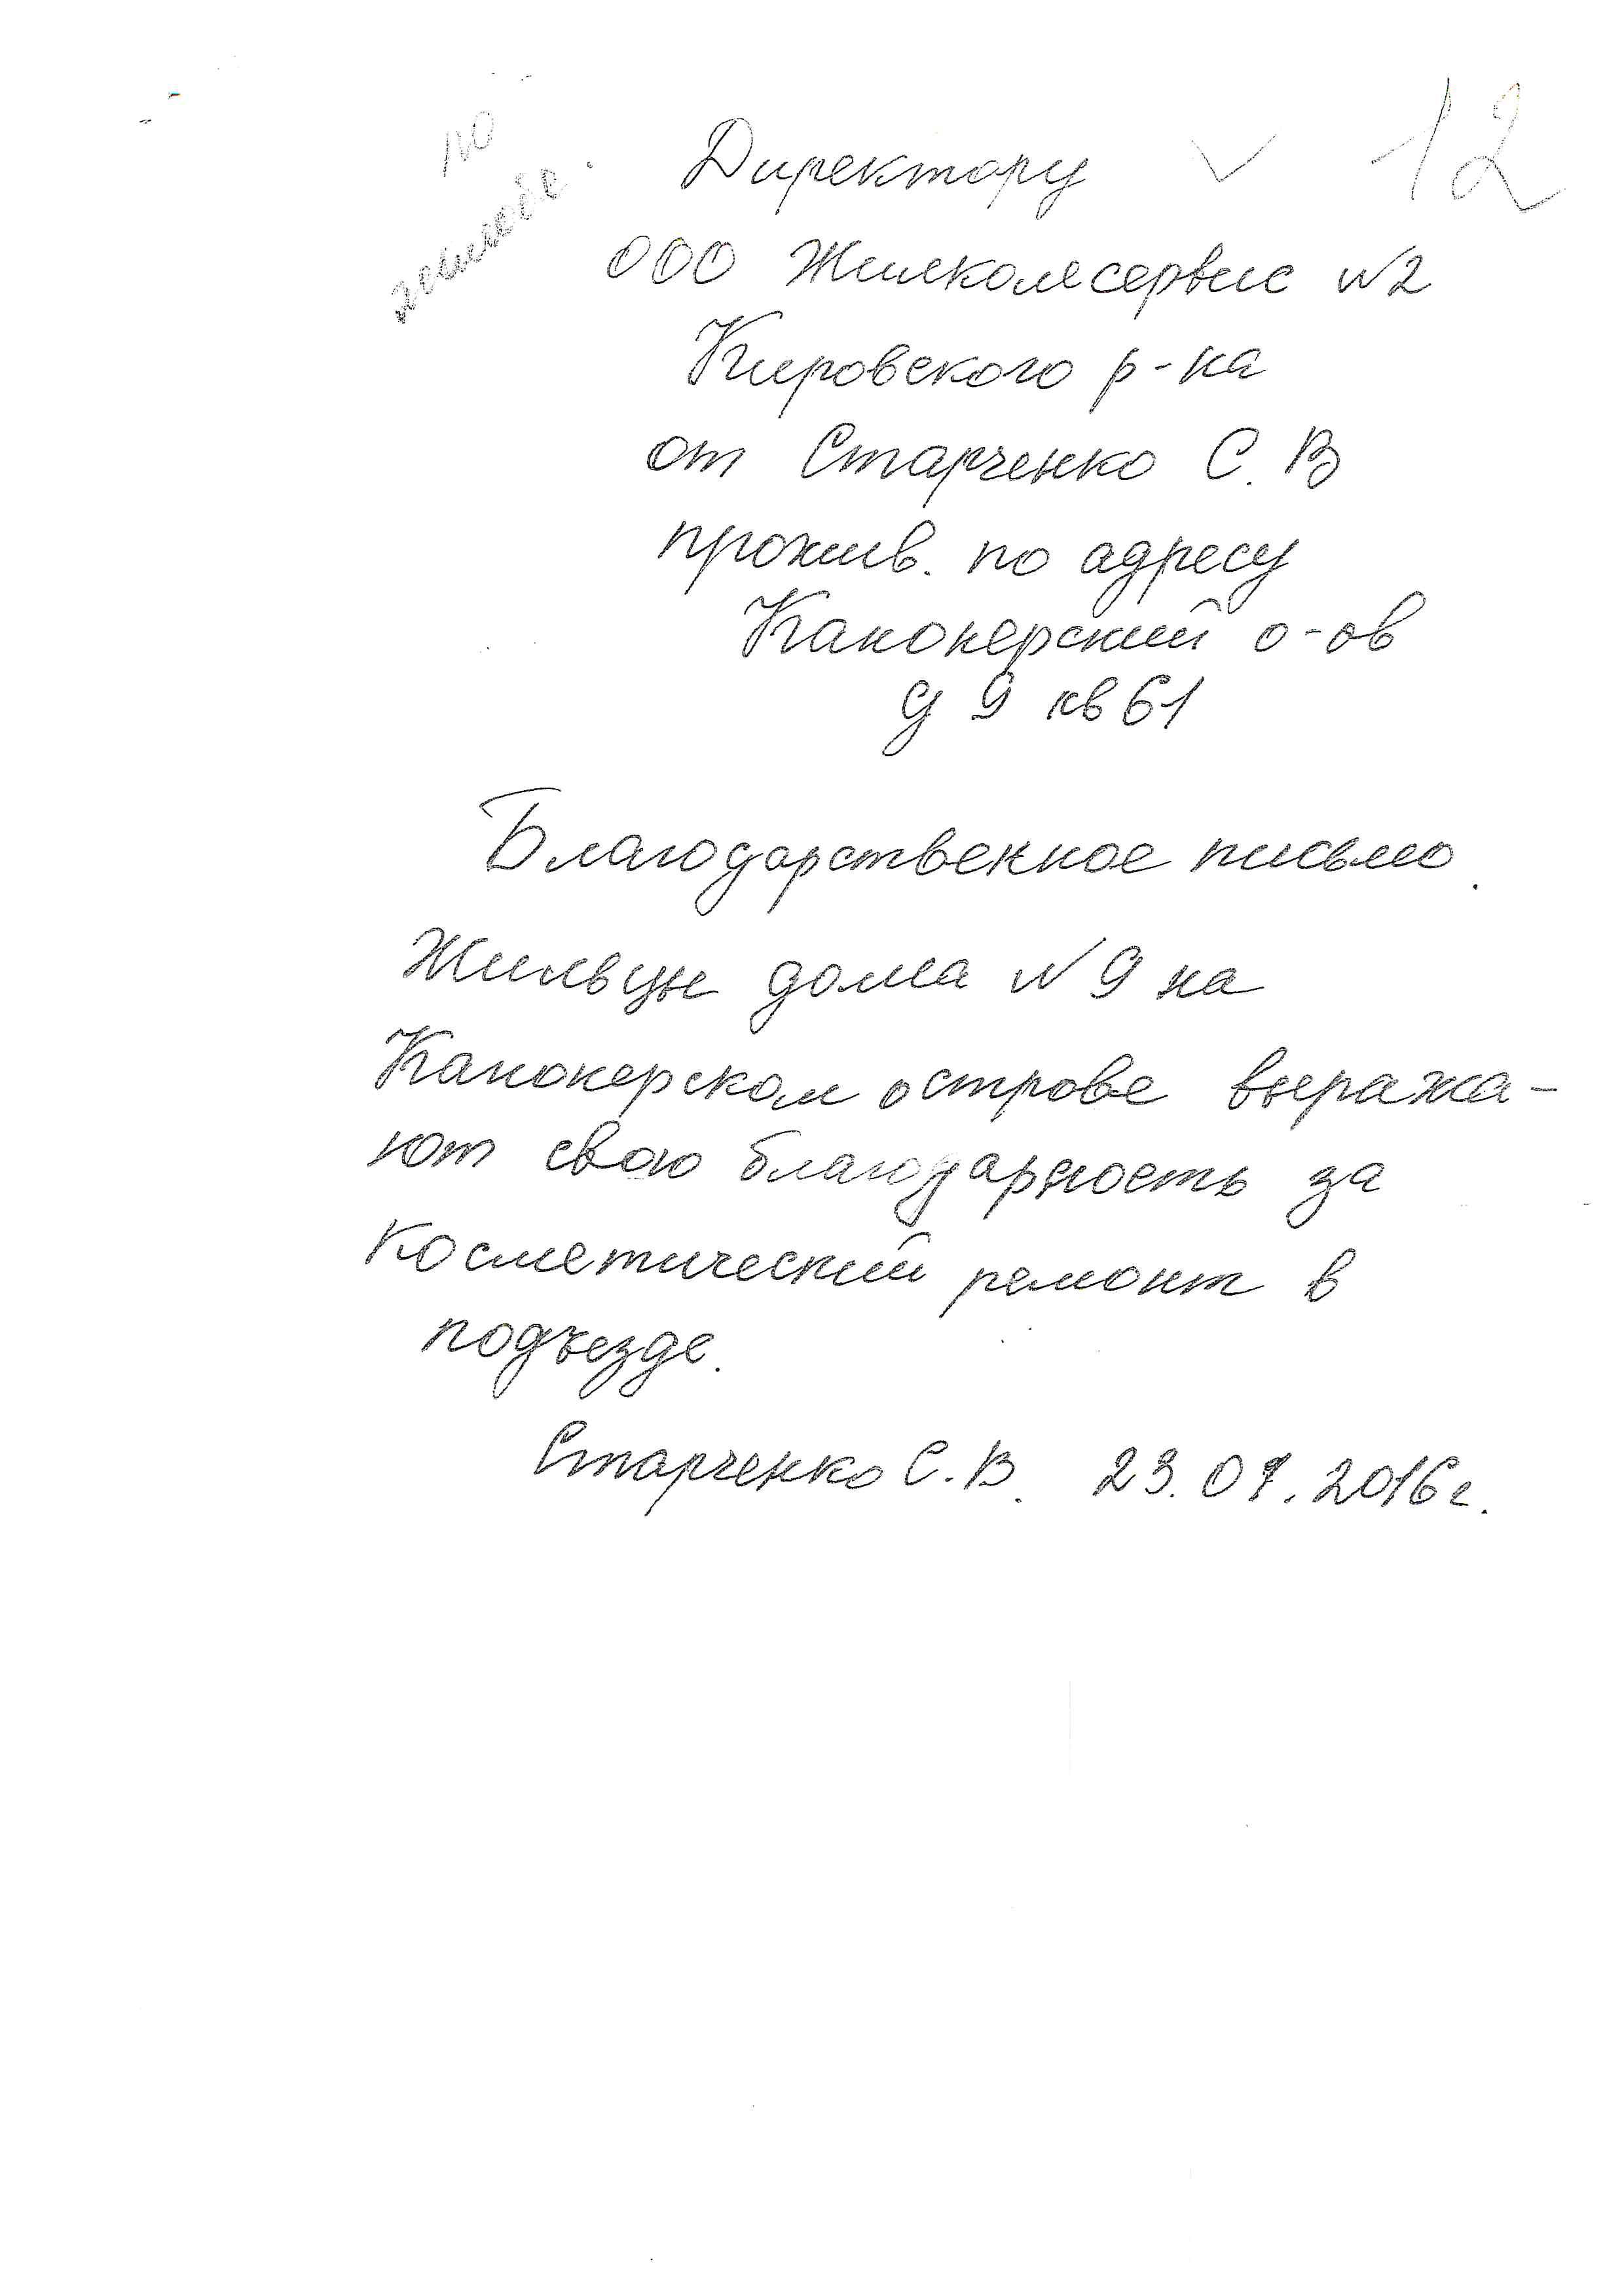 12
по
Директору
ООО Жилкомсервис N2
Кировского р-на
от Старченко С.В
прожив. по адресу
Канонерский о-ов
д 9 кв 61
Благодарственное письмо.
Жильцы дома N 9 на
Канонерском острове выража-
ют свою благодарность за
косметический ремонт в
подъезде.
Старченко С.В. 23.09.2016г.